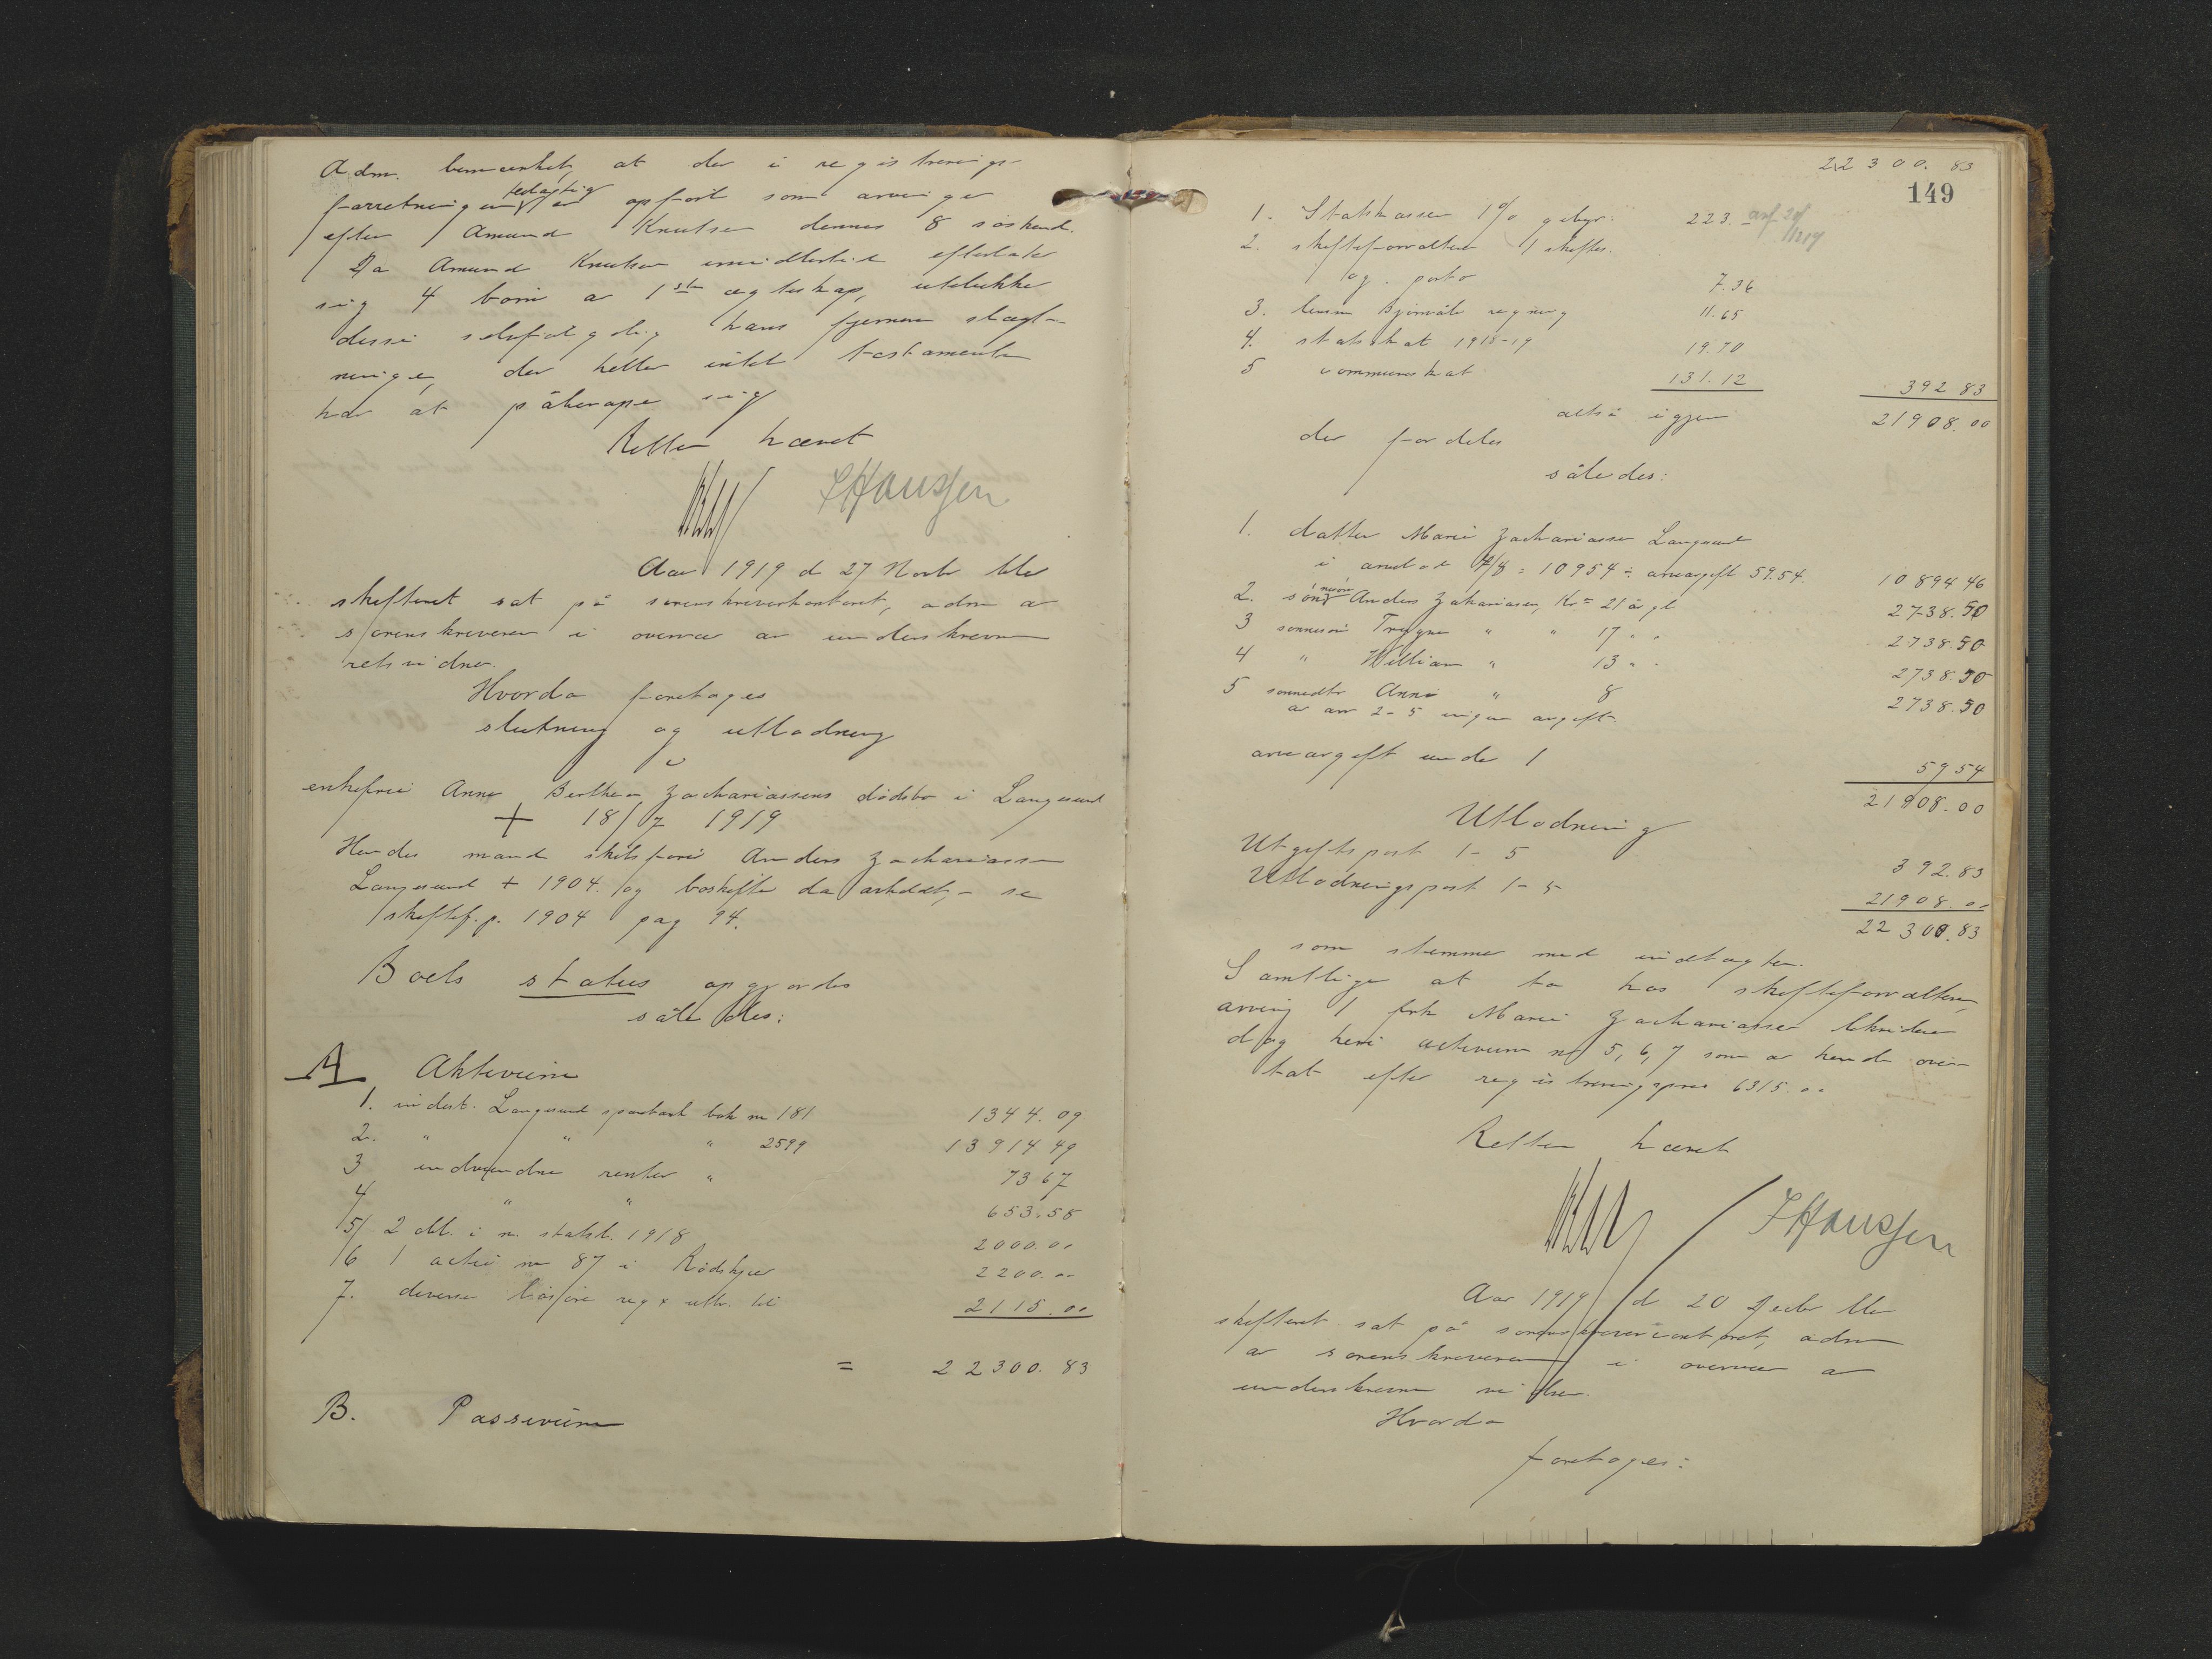 Adm. bemærket, at der i registrerings-
forretningen feilagtig er opført som arvinger
efter Amund Knutsen dennes 8 søskend.
Da Amund Knutsen imidlertid efterlater
sig 4 børn av 1ste egteskap, utelukker
disse selvfølgelig hans fjernere slægt-
ninger, der heller intet testamente
har at påberope sig
Retten hævet
Hanssen
Aar 1919 d 27 Novbr blev
skifteret sat på sorenskriverkontoret, adm av
sorenskriveren i overvær av underskrevne
retsvidner.
Hvorda foretages
slutning og utlodning
i
enkefrue Anne Berthea Zachariassens dødsbo i Langesund
+ 18/7 1919
Hendes mand skibsfører Anders Zachariassen
Langesund + 1904 og boskifte da avholdt, - se
skiftef.p. 1904 pag 94.
Boets status opgjordes
således:
A Aktivum
1. indest. Langesund sparebank bok nr 181 1344.09
2. " " " 2599 13914 49
3 indvundne renter " 73 67
4 " " 653.58
5 2 obl. i n. statsl. 1918 2000.00
6 1 actie nr 87 i Rødskjær 2200.00
7. diverse løsøre reg x utl. til 2115.00
= 22300.83
B. Passivum
22300.83
149
1. Statskassen 1% gebyr: 223.-
2. skifteforvalteren 1 skiftes.
og porto 7.36
3. lensm Bjørvåls regning 11.65
4. statsskat 1918-19 19.70
5 communeskat 131.12 392 83
altså igjen 21908.00
der fordeles
således:
1. datter Marie Zachariassen Langesund
i arvelod = 10954 ÷ arveavgift 59.54. 10894 46
2. sønnesøn Anders Zakariasen, Kr= 21 år gl 2738.50
3 sønnesøn Trygve " " 17 " " 2738.50
4 " William " 13 " " 2738.50
5 sønnedtr Anna " 8 2738.50
av arv 2-5 ingen avgift.
arveavgift under 1 59 54
21908.00
Utlodning
Utgiftspost 1-5 392.83
Utlodningspost 1-5 21908.00
22300.83
som stemmer med indtægten.
Samtlige at ta hos skifteforvalteren,
arving 1 frk Marie Zachariassen likviderer
dog heri activum nr 5, 6, 7 som av hende over-
tat efter registreringspris 6315.00
Retten hævet
Hanssen
Aar 1919 d 20 Decbr blev
skifteret sat på sorenskriverkontoret, adm
av sorenskriveren i overvær av
underskrevne vidner.
Hvorda
foretages: